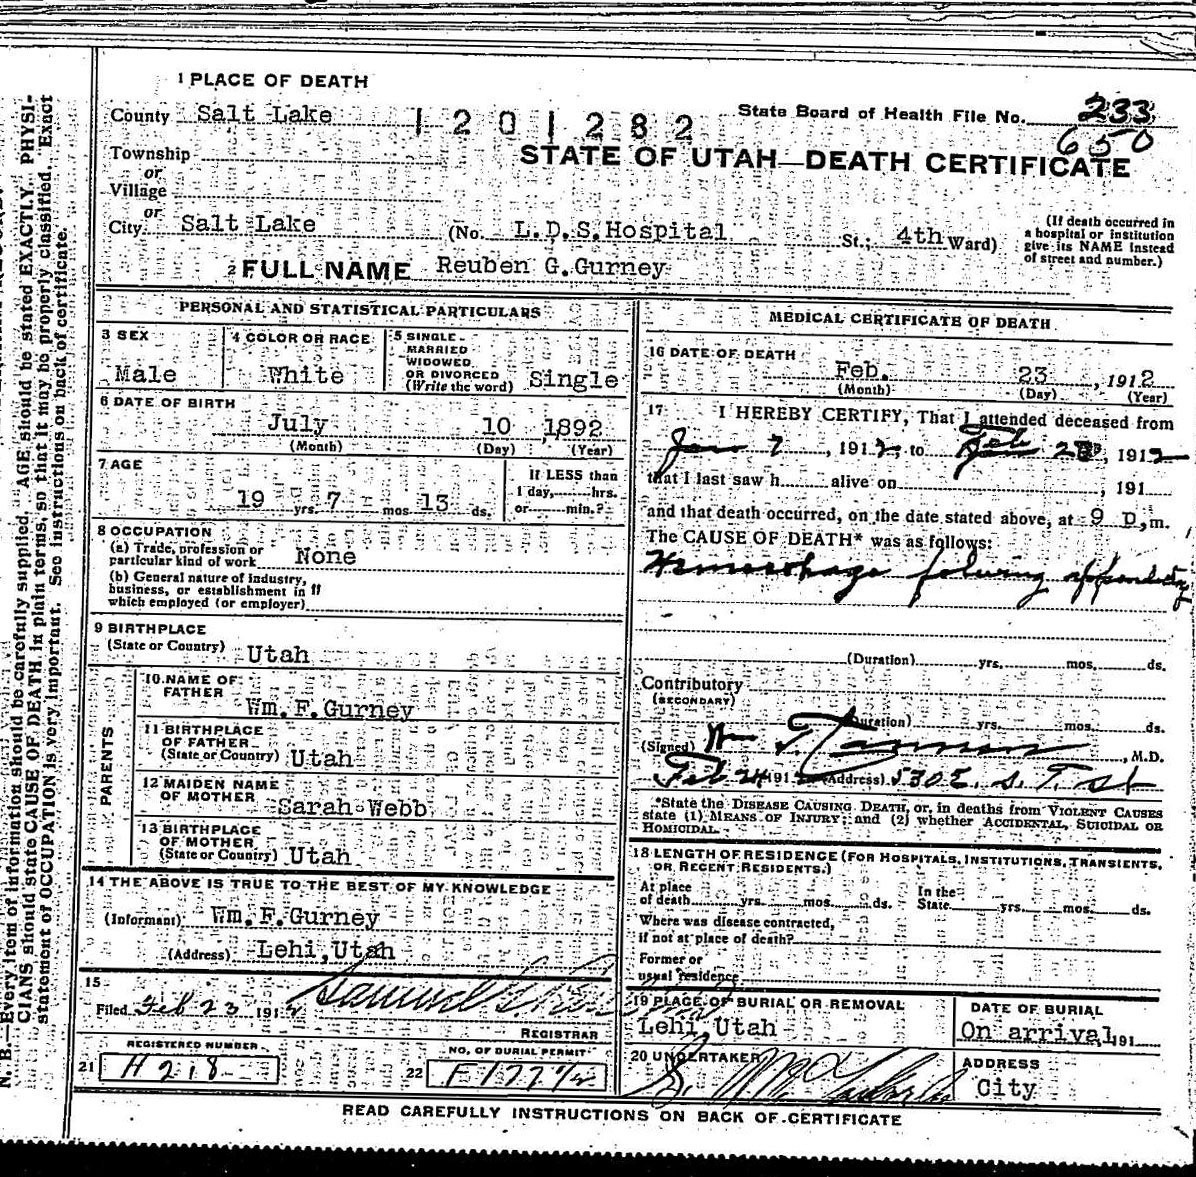 N. B.—Every item of information should be carefully supplied. AGE should be stated EXACTLY. PHYSI-
CIANS should state CAUSE OF DEATH in plain terms, so that it may be properly classified. Exact
statement of OCCUPATION is very important. See instructions on back of certificate.
1 PLACE OF DEATH
County Salt Lake
1201282
State Board of Health File No. 233
650
Township
or
Village
or
STATE OF UTAH—DEATH CERTIFICATE
City Salt Lake (No. L.D.S.Hospital St.; 4th Ward)
(If death occurred in
a hospital or institution
give its NAME instead
of street and number.)
2 FULL NAME Reuben G.Gurney
PERSONAL AND STATISTICAL PARTICULARS
3 SEX
Male
4 COLOR OR RACE
White
5 SINGLE
MARRIED
WIDOWED
OR DIVORCED
(Write the word) Single
6 DATE OF BIRTH
July 10, 1892
(Month) (Day) (Year)
7 AGE
19 yrs. 7 mos. 13 ds.
If LESS than
1 day, hrs.
or min.?
8 OCCUPATION
(a) Trade, profession or
particular kind of work None
(b) General nature of industry,
business, or establishment in "
which employed (or employer)
9 BIRTHPLACE
(State or Country) Utah
PARENTS
10 NAME OF
FATHER Wm.F.Gurney
11 BIRTHPLACE
OF FATHER
(State or Country) Utah
12 MAIDEN NAME
OF MOTHER Sarah Webb
13 BIRTHPLACE
OF MOTHER
(State or Country) Utah
14 THE ABOVE IS TRUE TO THE BEST OF MY KNOWLEDGE
(Informant) Wm.F.Gurney
(Address) Lehi,Utah
15
Filed Feb 23 1912 Samuel
REGISTRAR
REGISTERED NUMBER
21 H218
NO. OF BURIAL PERMIT
22 F1772
MEDICAL CERTIFICATE OF DEATH
16 DATE OF DEATH
Feb. 23, 1912
(Month) (Day) (Year)
17 I HEREBY CERTIFY, That I attended deceased from
Jan 7, 1912, to Feb 23, 1912
that I last saw h alive on , 191
and that death occurred, on the date stated above, at 9 P,m.
The CAUSE OF DEATH* was as follows:
Hemorrhage folowing
(Duration) yrs. mos. ds.
Contributory
(SECONDARY)
(Duration) yrs. mos. ds.
(Signed) Wm , M.D.
Feb 24 1912 (Address) 530 E. S. T. St
*State the DISEASE CAUSING DEATH, or, in deaths from VIOLENT CAUSES
state (1) MEANS OF INJURY; and (2) whether ACCIDENTAL, SUICIDAL OR
HOMICIDAL.
18 LENGTH OF RESIDENCE (FOR HOSPITALS, INSTITUTIONS, TRANSIENTS,
OR RECENT RESIDENTS.)
At place
of death yrs. mos. ds.
In the
State yrs. mos. ds.
Where was disease contracted,
if not at place of death?
Former or
usual residence
19 PLACE OF BURIAL OR REMOVAL
Lehi,Utah
DATE OF BURIAL
On arrival, 191
20 UNDERTAKER
ADDRESS
City
READ CAREFULLY INSTRUCTIONS ON BACK OF CERTIFICATE